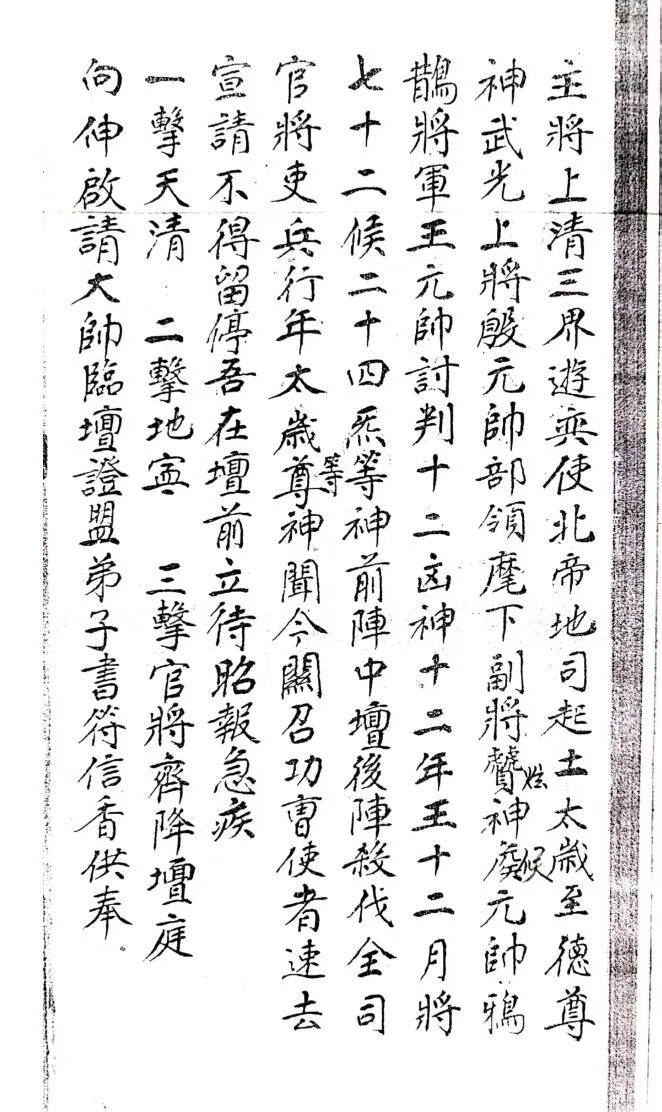 主將上清三界遊奕使北帝地司起土太歲至德尊
神武光上將殷元帥部領麾下副將蠶神矦候元帥鴉
鵲將軍王元帥討判十二凶神十二年王十二月將
七十二候二十四炁等神前陣中壇後陣殺伐全司
官將吏兵行年太歲尊等神聞今關召功曹使者速去
宣請不得留停吾在壇前立待昭報急疾
一擊天清 二擊地寧 三擊官將齊降壇庭
向伸啟請大帥臨壇證盟弟子書符信香供奉